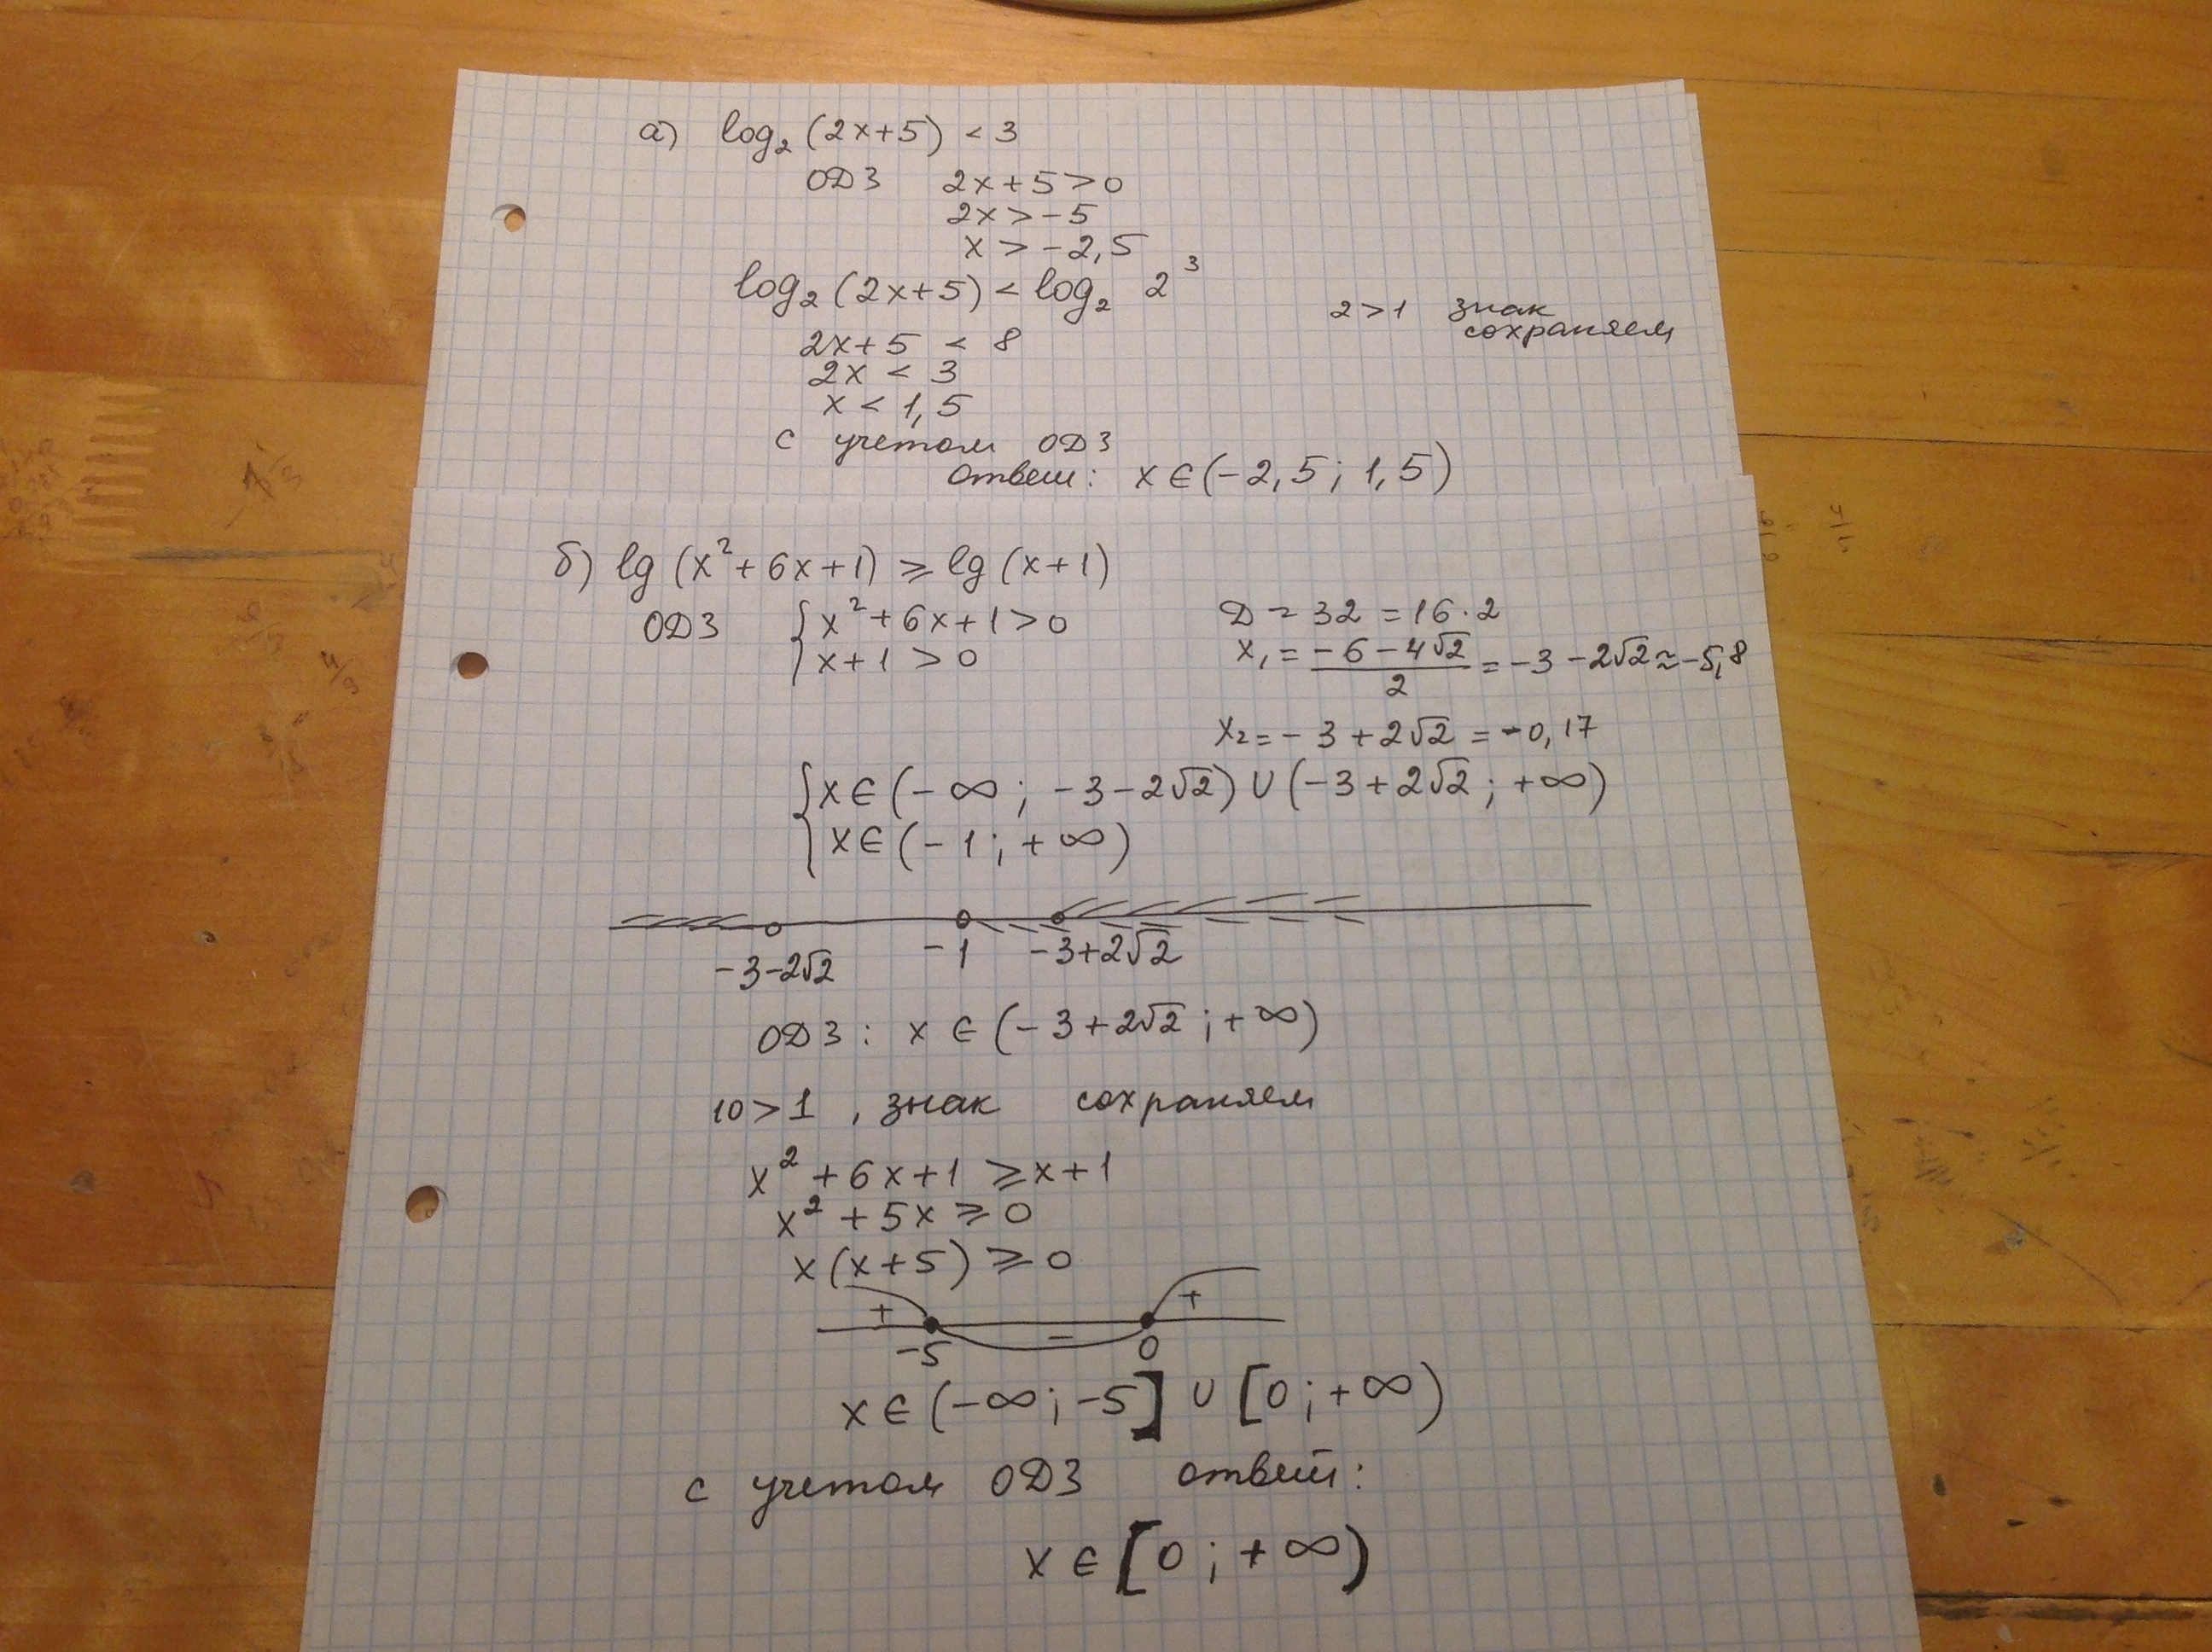 а) log₂ (2x+5) < 3
ОДЗ 2x+5>0
2x>-5
x>-2,5
log₂ (2x+5) < log₂ 2³
2>1 знак
сохраняем
2x+5 < 8
2x < 3
x < 1,5
с учетом ОДЗ
ответ: x∈(-2,5; 1,5)
б) lg (x²+6x+1) ⩾ lg (x+1)
ОДЗ { x²+6x+1>0
x+1>0
D = 32 = 16·2
x₁ = (-6-4√2)/2 = -3-2√2 ≈ -5,8
x₂ = -3+2√2 = -0,17
{ x∈(-∞; -3-2√2) ∪ (-3+2√2; +∞)
x∈(-1; +∞)
-3-2√2 -1 -3+2√2
ОДЗ: x ∈ (-3+2√2; +∞)
10>1, знак сохраняем
x²+6x+1 ⩾ x+1
x²+5x ⩾ 0
x(x+5) ⩾ 0
+ − +
-5 0
x∈(-∞; -5] ∪ [0; +∞)
с учетом ОДЗ ответ:
x∈[0; +∞)